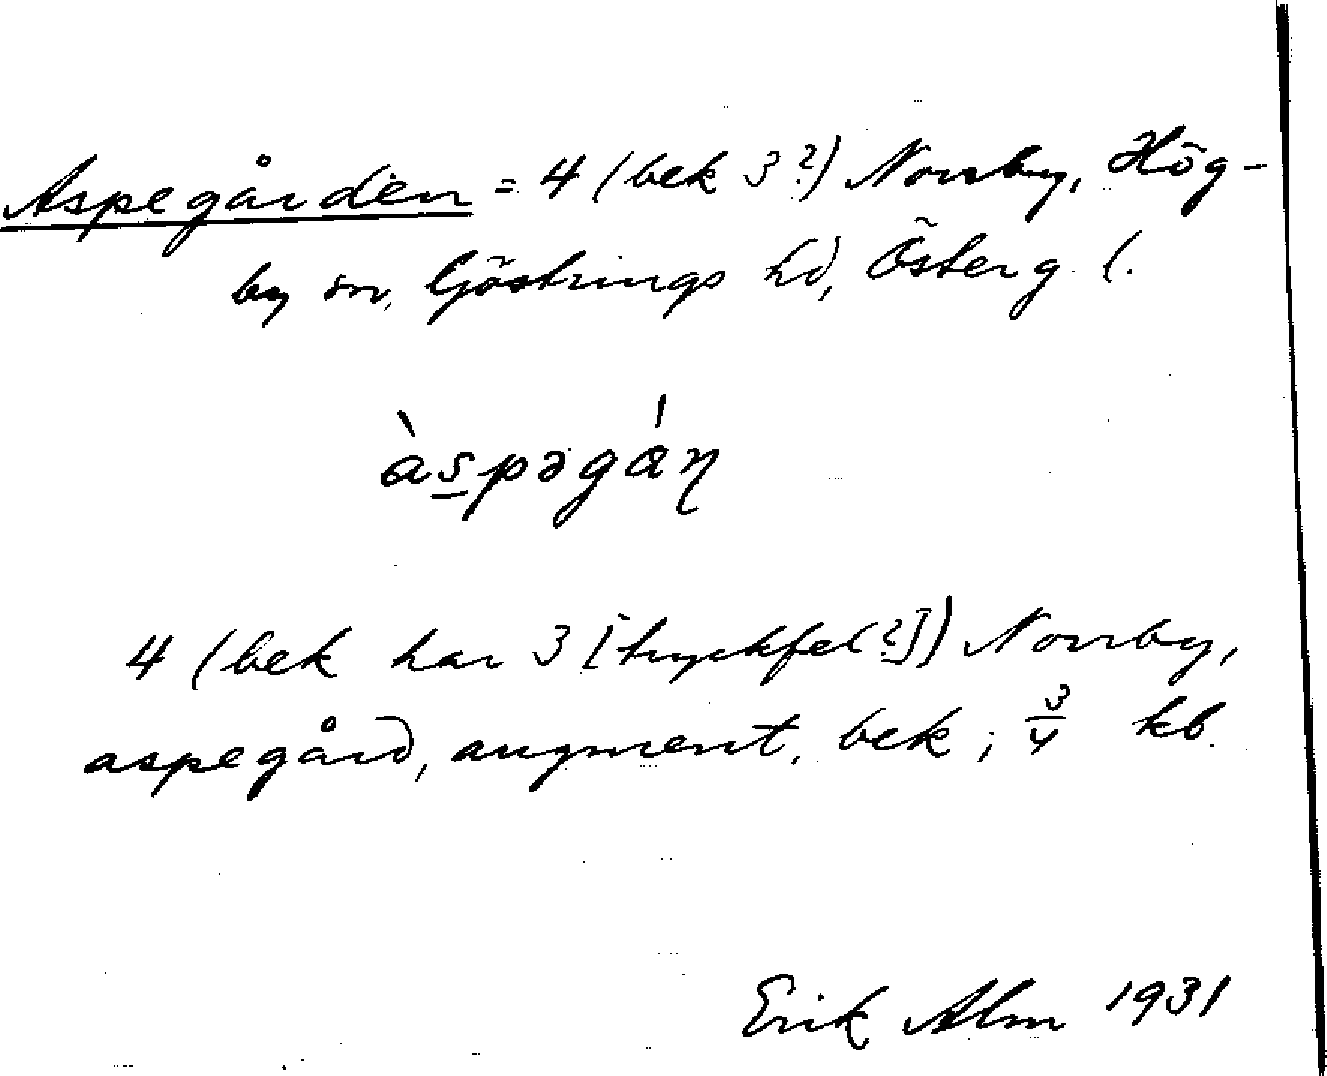 Aspegården = 4 (bek 3?) Norrby, Hög-
by sn, Göstrings hd, Österg l.
às̲pəgáɳ
4 (bek har 3 [tryckfel?]) Norrby,
aspegård, augment, bek; 3/4 kb.
Erik Alm 1931